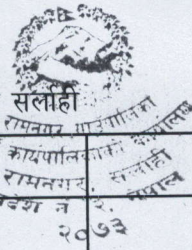 सर्लाही
रामनगर गाउँपालिका
कार्यपालिकाको कार्यालय
रामनगर, सर्लाही
प्रदेश नं २, नेपाल
२०७३